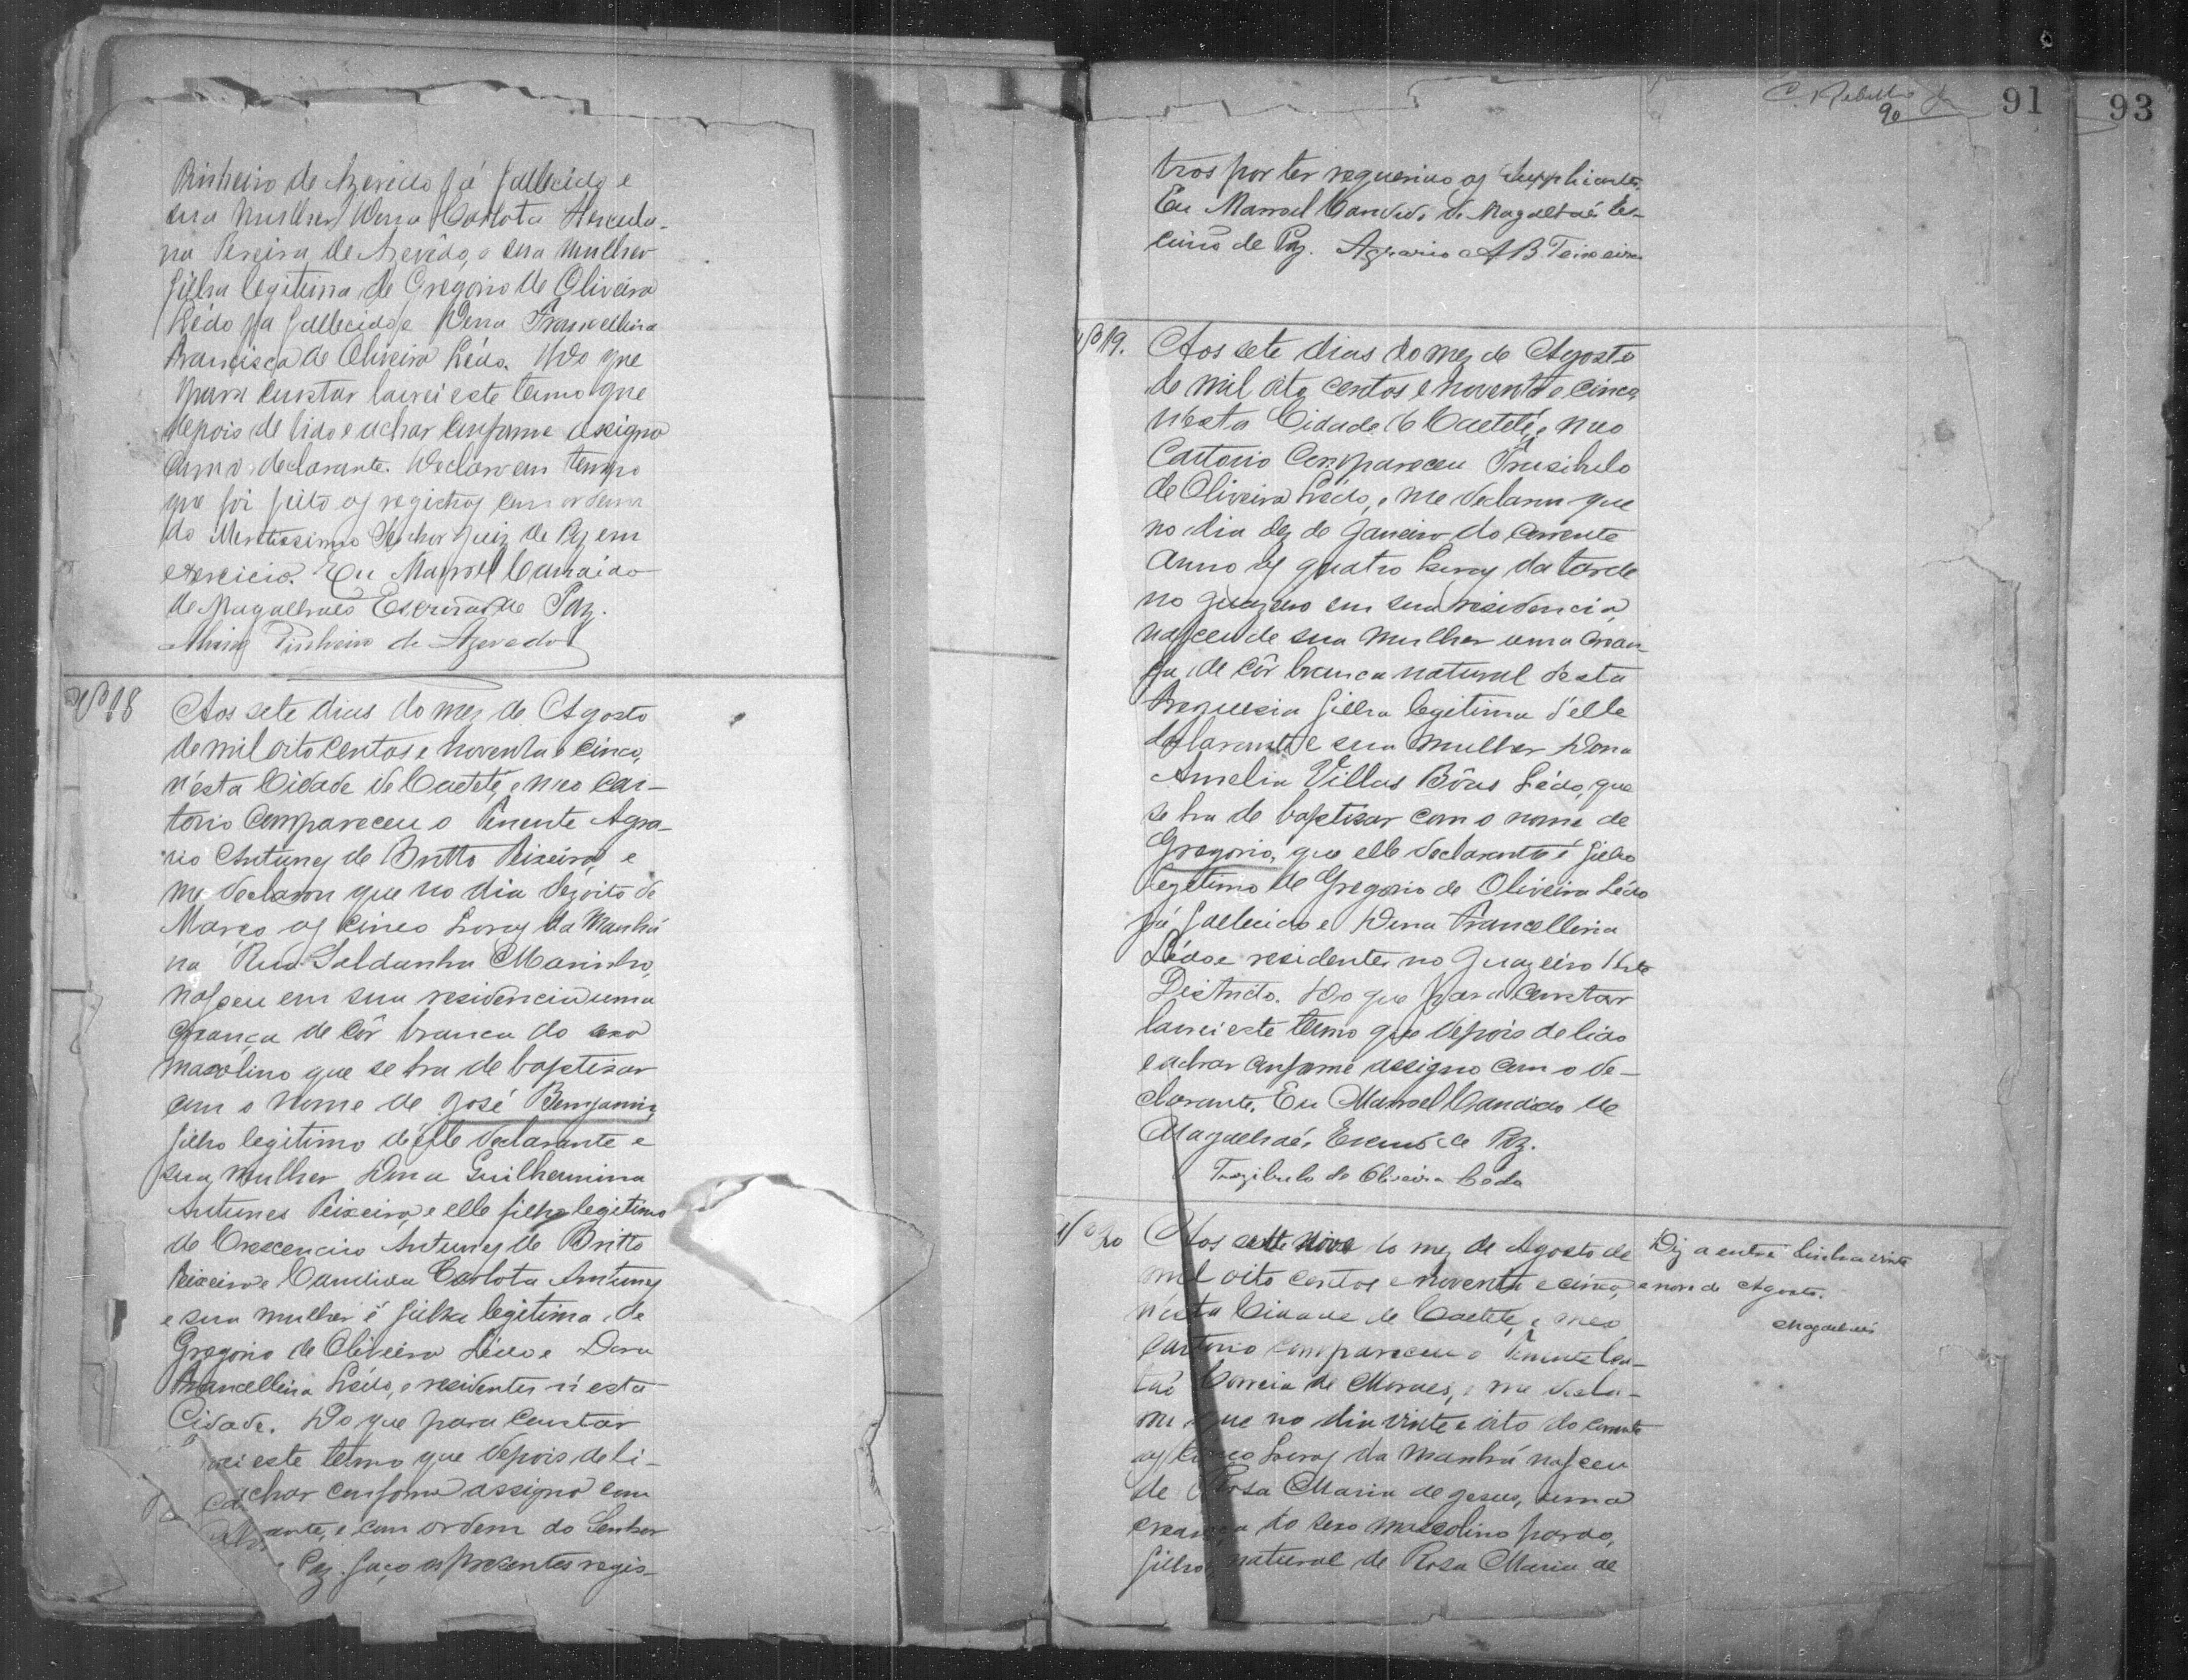 Pinheiro de Azevedo já fallecido e
sua mulher Dona Carlota Hercula-
na Pereira de Azevêdo, e sua mulher
filha legitima de Gregorio de Oliveira
Lêdo já fallecido e Dona Francellina
Francisca de Oliveira Lêdo. Do que
para constar lavrei este termo que
depois de lido e achar conforme assigno
com o declarante. Declaro em tempo
que foi feito os registros com ordem
do Meritissimo Senhor Juiz de Paz em
exercicio. Eu Manoel Candido
de Magalhães Escrivão de Paz.
Pinheiro de Azevedo
Nº 18
Aos sete dias do mez de Agosto
de mil oito centos e noventa e cinco,
n'esta Cidade de Caeteté, e meo Car-
torio Compareceu o Tenente Agra-
rio Antunes de Britto Teixeira, e
me declarou que no dia dezoito de
Março as cinco horas da manhã
na Rua Saldanha Marinho,
nasceu em sua residencia uma
criança de côr branca do sexo
mascolino que se ha de baptisar
com o nome de José Benjamin,
filho legitimo d'elle declarante e
sua mulher Dona Guilhermina
Antunes Teixeira, e elle filho legitimo
de Crescencio Antunes de Britto
Teixeira e Candida Carlota Antunes
e sua mulher é filha legitima de
Gregorio de Oliveira Lêdo e Dona
Francellina Lêdo, e residentes n'esta
Cidade. Do que para constar
rei este termo que depois de li-
achar conforme assigno com
ante, e com ordem do Senhor
Paz faço os presentes regis-
C. Rebello
90
91
93
tros por ter requerido os Supplicantes.
Eu Manoel Candido de Magalhães Es-
crivão de Paz. Agrario A B Teixeira
Nº 19.
Aos sete dias do mez de Agosto
de mil oito centos e noventa e cinco,
n'esta Cidade de Caeteté, e meo
Cartorio Compareceu Trasibulo
de Oliveira Lêdo, e me declarou que
no dia dez de Janeiro do corrente
anno as quatro horas da tarde
no Juazeiro em sua residencia,
nasceu de sua mulher uma crian-
ça de côr branca natural desta
Freguesia filha legitima d'elle
declarante e sua mulher Dona
Amelia Villas Bôas Lêdo, que
se ha de baptisar com o nome de
Gregorio, que elle declarante é filho
legitimo de Gregorio de Oliveira Lêdo
já fallecido e Dona Francellina
Lêdo e residentes no Juazeiro deste
Districto. Do que para constar
lavrei este termo que depois de lido
e achar conforme assigno com o de-
clarante. Eu Manoel Candido de
Magalhães Escrivão de Paz.
Trazibulo de Oliveira Lêdo
Nº 20
Aos sette nove do mez de Agosto de
mil oito centos e noventa e cinco,
n'esta Cidade de Caeteté, e meo
Cartorio compareceu o Tenente
Correia de Moraes, e me decla-
rou que no dia vinte e oito do corrente
as cinco horas da manhã nasceu
de Rosa Maria de Jesus, uma
criança do sexo mascolino pardo,
filho natural de Rosa Maria de
Diz a entre linha vinte
e nove de Agosto.
Magalhães